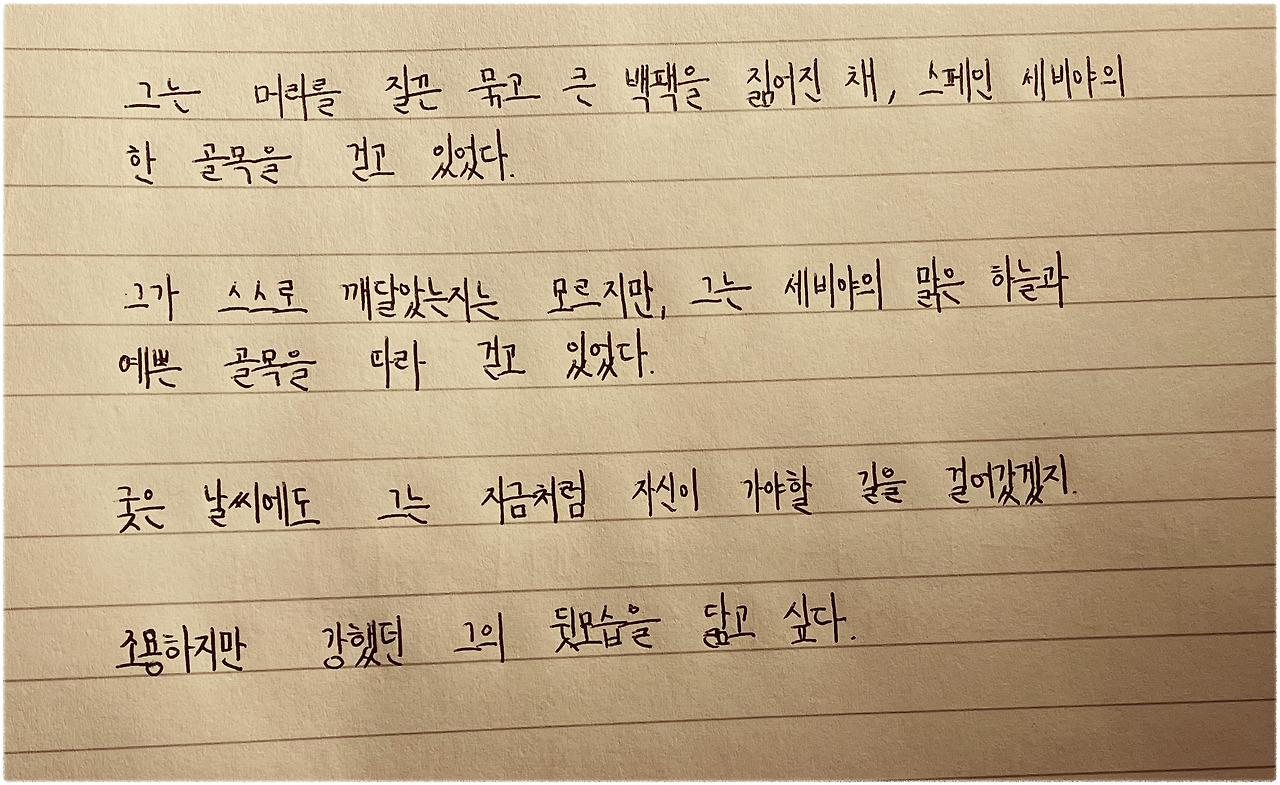 그는 머리를 질끈 묶고 큰 백팩을 짊어진 채, 스페인 세비야의
한 골목을 걷고 있었다.
그가 스스로 깨달았는지는 모르지만, 그는 세비야의 맑은 하늘과
예쁜 골목을 따라 걷고 있었다.
궂은 날씨에도 그는 지금처럼 자신이 가야할 길을 걸어갔겠지.
조용하지만 강했던 그의 뒷모습을 닮고 싶다.